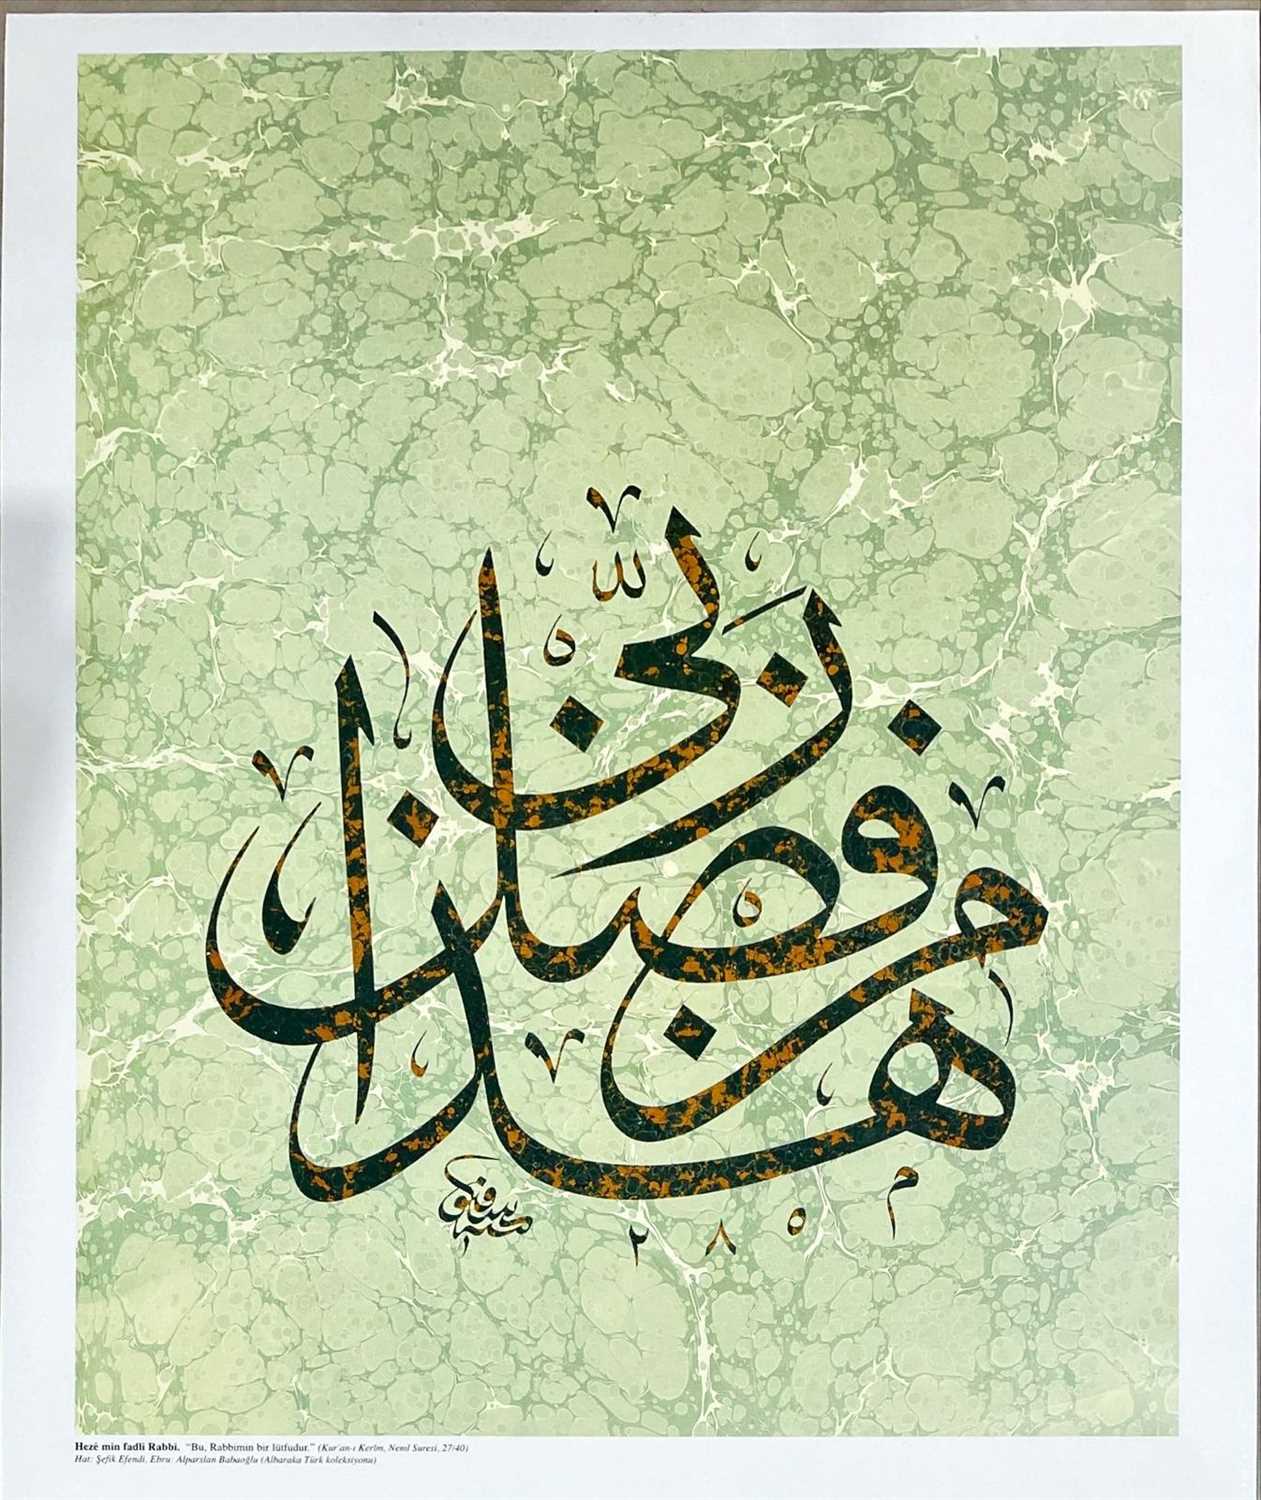 هذا من فضل ربي
Hezê min fadli Rabbî. "Bu, Rabbimin bir lütfudur." (Kur'an-ı Kerîm, Neml Suresi, 27/40)
Hat: Şefik Efendi, Ebru: Alparslan Babaoğlu (Albaraka Türk koleksiyonu)